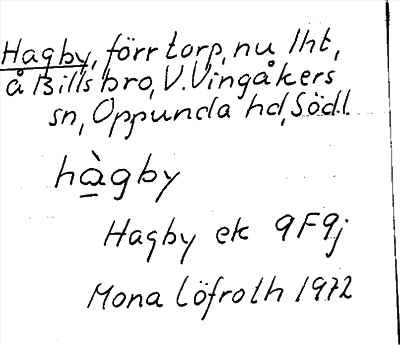 Hagby, förr torp, nu lht,
å Billsbro, V. Vingåkers
sn, Oppunda hd, Södl.
hàgby
Hagby ek 9F9j
Mona Löfroth 1972